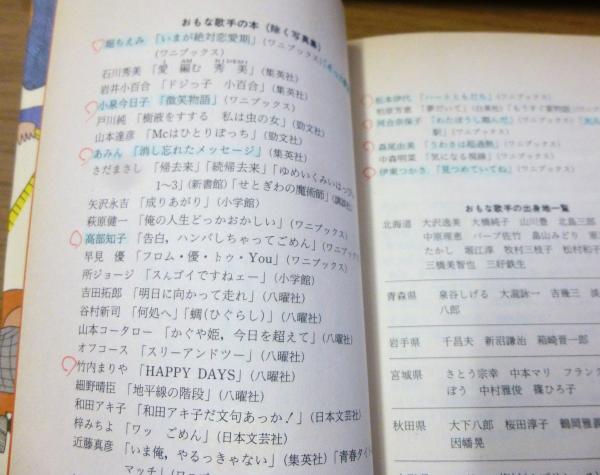 おもな歌手の本(除く写真集)
堀ちえみ「いまが絶対恋愛期」(ワニブックス)
(ワニブックス)
石川秀美「愛 編む 秀美」(集英社)
岩井小百合「ドジっ子 小百合」(集英社)
小泉今日子「微笑物語」(ワニブックス)
戸川純「樹液をすする 私は虫の女」(勁文社)
山本達彦「Mcはひとりぼっち」(勁文社)
あみん「消し忘れたメッセージ」(集英社)
さだまさし「帰去来」「続帰去来」「ゆめいくみいはっぴい
1〜3」(新書館)「せとぎわの魔術師」(講談社)
矢沢永吉「成りあがり」(小学館)
萩原健一「俺の人生どっかおかしい」(ワニブックス)
高部知子「告白, ハンパしちゃってごめん」(ワニブックス)
早見 優「フロム・優・トゥ・You」(ワニブックス)
所ジョージ「スんゴイですねェー」(小学館)
吉田拓郎「明日に向かって走れ」(八曜社)
谷村新司「何処へ」「蜩(ひぐらし)」(八曜社)
山本コータロー「かぐや姫, 今日を超えて」(八曜社)
オフコース「スリーアンドツー」(八曜社)
竹内まりや「HAPPY DAYS」(八曜社)
細野晴臣「地平線の階段」(八曜社)
和田アキ子「和田アキ子だ文句あっか!」(日本文芸社)
梓みちよ「ワッ ごめん」(日本文芸社)
近藤真彦「いま俺, やるっきゃない」(集英社)「青春タイ
マッチ」(ワニブックス)
松本伊代「ハートともだち」(ワニブックス)
柏原芳恵「夢だいて」(白泉社)「もうすぐ
河合奈保子「わたぼうし翔んだ」(ワニブックス)
駅」(ワニブックス)
森尾由美「うわさは超過熱」(ワニブックス)
中森明菜「気になる視線」(ワニブックス)
伊東つかさ「見つめていてね」(ワニブックス)
おもな歌手の出身地一覧
北海道 大沢逸美 大橋純子 山川豊 北島三郎
中原理恵 バーブ佐竹 畠山みどり
たかし 堀江淳 牧村三枝子 松村和子
三橋美智也 三好鉄生
青森県 泉谷しげる 大滝詠一 吉幾三
八郎
岩手県 千昌夫 新沼謙治 箱崎晋一郎
宮城県 さとう宗幸 中本マリ フランク
ぼう 中村雅俊 篠ひろ子
秋田県 大下八郎 桜田淳子 鶴岡雅義
因幡晃